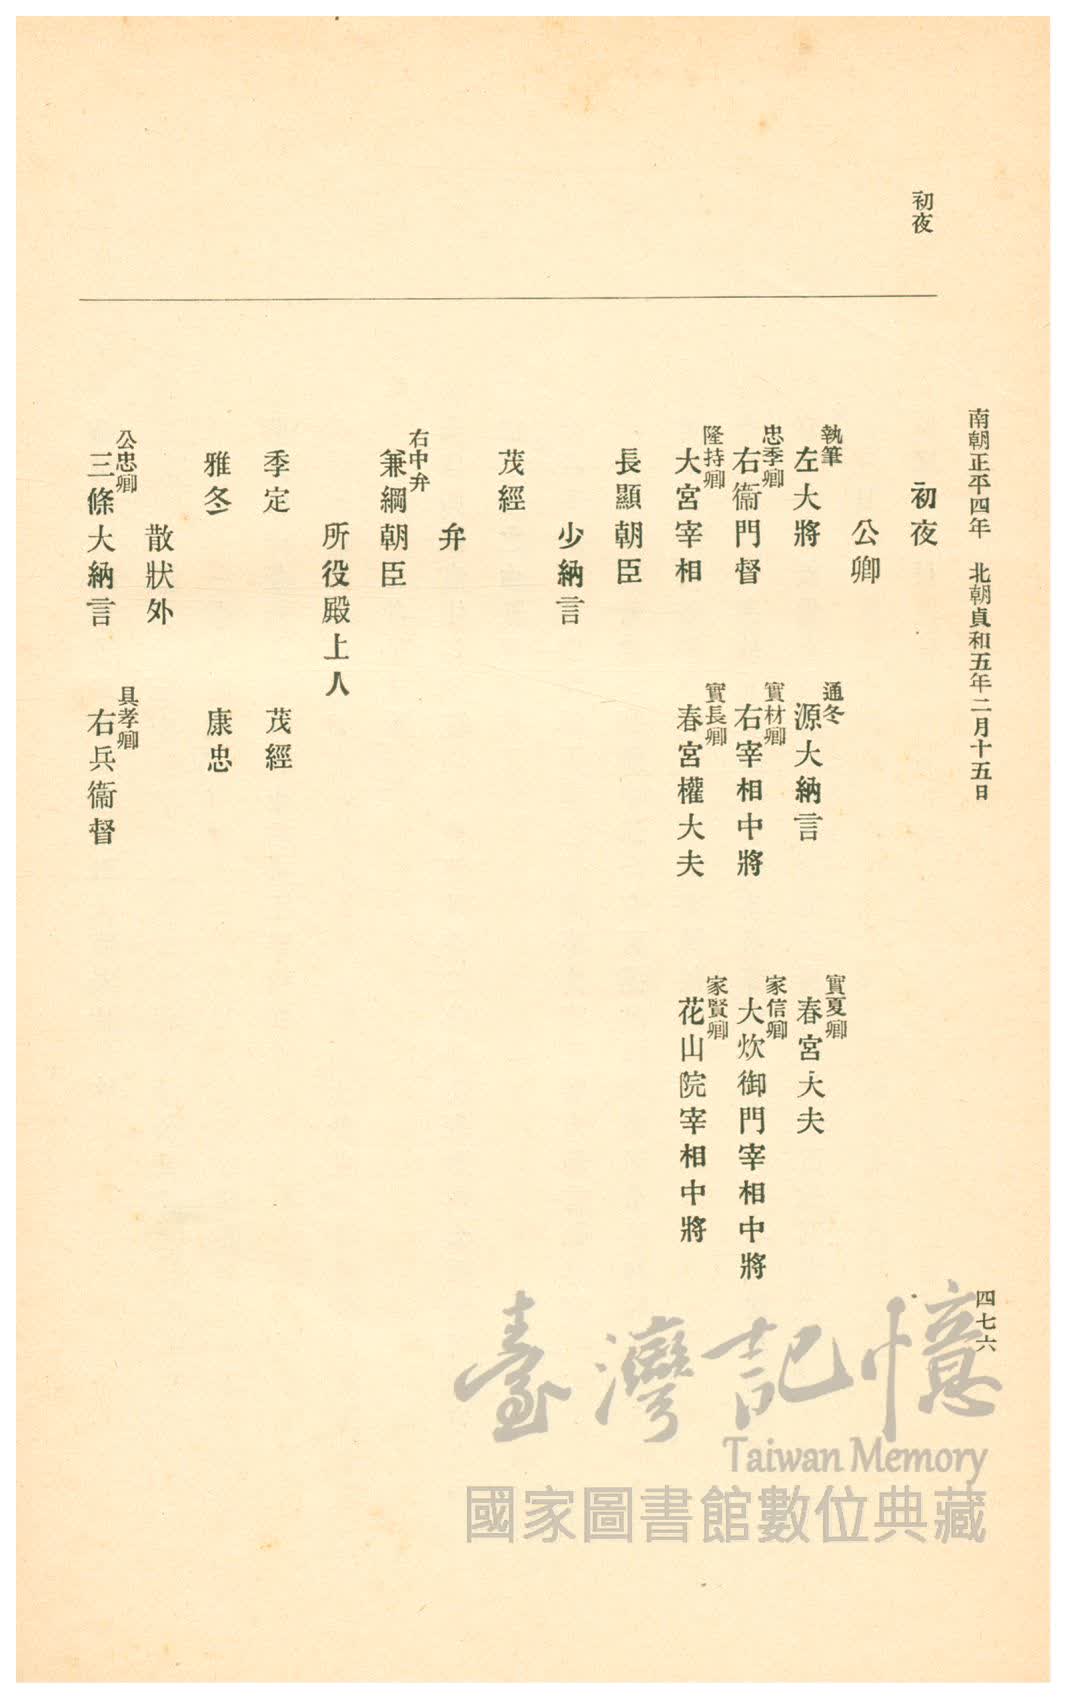 南朝正平四年　北朝貞和五年二月十五日
四七六
初夜
初夜
公卿
執筆
左大將
通冬
源大納言
實夏卿
春宮大夫
忠季卿
右衞門督
實材卿
右宰相中將
家信卿
大炊御門宰相中將
隆持卿
大宮宰相
實長卿
春宮權大夫
家賢卿
花山院宰相中將
長顯朝臣
少納言
茂經
弁
右中弁
兼綱朝臣
所役殿上人
季定　茂經
雅冬　康忠
散狀外
公忠卿
三條大納言
具孝卿
右兵衞督
臺灣記憶
Taiwan Memory
國家圖書館數位典藏